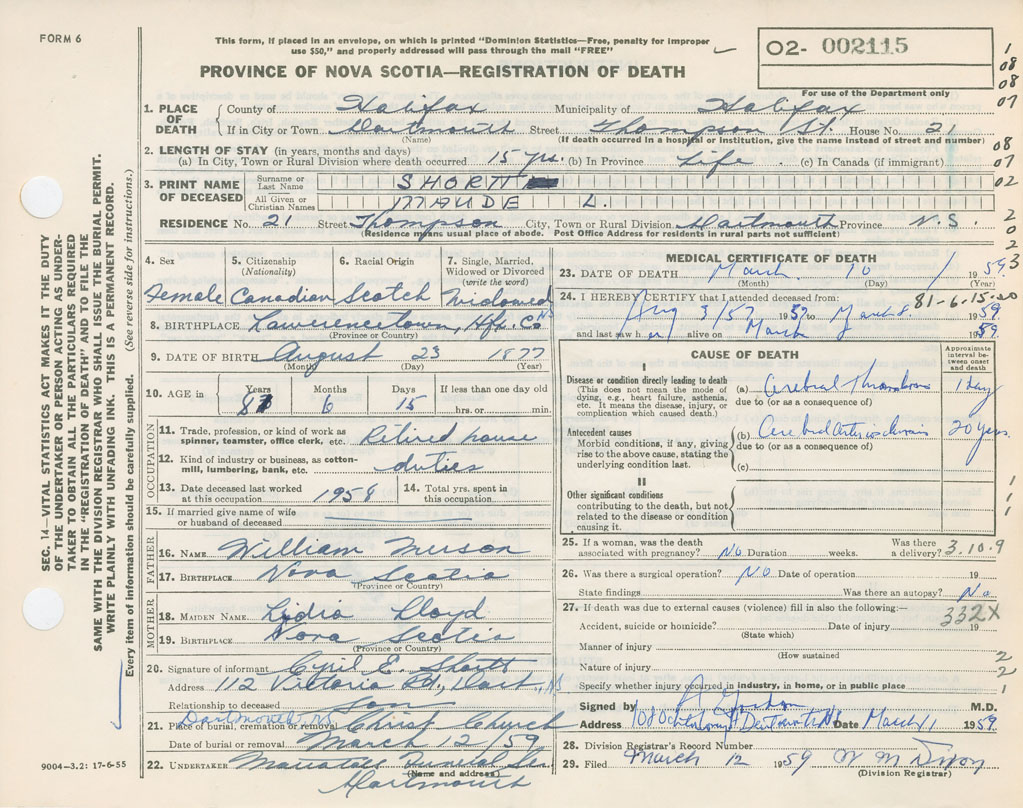 FORM 6
This form, if placed in an envelope, on which is printed "Dominion Statistics—Free, penalty for improper
use $50," and properly addressed will pass through the mail "FREE"
02- 002115
For use of the Department only
PROVINCE OF NOVA SCOTIA—REGISTRATION OF DEATH
1
08
08
07
1. PLACE OF DEATH { County of Halifax Municipality of Halifax
If in City or Town Dartmouth Street Thompson St. House No. 21
(Name) (If death occurred in a hospital or institution, give the name instead of street and number)
08
2. LENGTH OF STAY (in years, months and days)
(a) In City, Town or Rural Division where death occurred 15 yrs. (b) In Province Life (c) In Canada (if immigrant)
07
3. PRINT NAME OF DECEASED { Surname or Last Name SHORTT
02
All Given or Christian Names MAUDE L.
RESIDENCE No. 21 Street Thompson City, Town or Rural Division Dartmouth Province N.S
(Residence means usual place of abode. Post Office Address for residents in rural parts not sufficient)
2
0
2
3
4. Sex Female
5. Citizenship (Nationality) Canadian
6. Racial Origin Scotch
7. Single, Married, Widowed or Divorced (write the word) Widowed
8. BIRTHPLACE Lawrencetown, Hfx. Co NS
(Province or Country)
9. DATE OF BIRTH August 23 1877
(Month) (Day) (Year)
10. AGE in Years 81 Months 6 Days 15 If less than one day old
hrs. or min.
OCCUPATION
11. Trade, profession, or kind of work as
spinner, teamster, office clerk, etc. Retired house
12. Kind of industry or business, as cotton-
mill, lumbering, bank, etc. duties
13. Date deceased last worked
at this occupation 1958
14. Total yrs. spent in
this occupation
15. If married give name of wife
or husband of deceased
FATHER
16. NAME William
17. BIRTHPLACE Nova Scotia
(Province or Country)
MOTHER
18. MAIDEN NAME Lidia Lloyd
19. BIRTHPLACE Nova Scotia
(Province or Country)
20. Signature of informant Cyril E. Shortt
Address 112 Victoria Rd., Dart., NS
Relationship to deceased Son
Dartmouth, NS
21. Place of burial, cremation or removal Christ Church
Date of burial or removal March 12/59
22. UNDERTAKER Funeral
(Name and address)
Dartmouth
MEDICAL CERTIFICATE OF DEATH
23. DATE OF DEATH March 10 1959
(Month) (Day) (Year)
81-6-15-
24. I HEREBY CERTIFY that I attended deceased from:
Aug 3/57 1957 to March 8 1959
and last saw her alive on March 1959
CAUSE OF DEATH
Approximate interval between onset and death
I
Disease or condition directly leading to death
(This does not mean the mode of
dying, e.g., heart failure, asthenia,
etc. It means the disease, injury, or
complication which caused death.)
(a) Cerebral Thrombosis 1 day
due to (or as a consequence of)
Antecedent causes
Morbid conditions, if any, giving
rise to the above cause, stating the
underlying condition last.
(b) Cerebral Arteriosclerosis 20 years
due to (or as a consequence of)
(c)
II
Other significant conditions
contributing to the death, but not
related to the disease or condition
causing it.
1
1
1
25. If a woman, was the death
associated with pregnancy? No Duration weeks. Was there
a delivery? 3.10.9
26. Was there a surgical operation? No Date of operation 19
State findings Was there an autopsy? No
27. If death was due to external causes (violence) fill in also the following:—
332X
Accident, suicide or homicide? Date of injury 19
(State which)
Manner of injury
(How sustained
Nature of injury
2
2
1
Specify whether injury occurred in industry, in home, or in public place
Signed by M.D.
Address Dartmouth NS Date March 11 1959
28. Division Registrar's Record Number
29. Filed March 12 1959
(Division Registrar)
SEC. 14—VITAL STATISTICS ACT MAKES IT THE DUTY
OF THE UNDERTAKER OR PERSON ACTING AS UNDER-
TAKER TO OBTAIN ALL THE PARTICULARS REQUIRED
IN THE "REGISTRATION OF DEATH" AND TO FILE THE
SAME WITH THE DIVISION REGISTRAR WHO SHALL ISSUE THE BURIAL PERMIT.
WRITE PLAINLY WITH UNFADING INK. THIS IS A PERMANENT RECORD.
Every item of information should be carefully supplied. (See reverse side for instructions.)
9004-3.2: 17-6-55